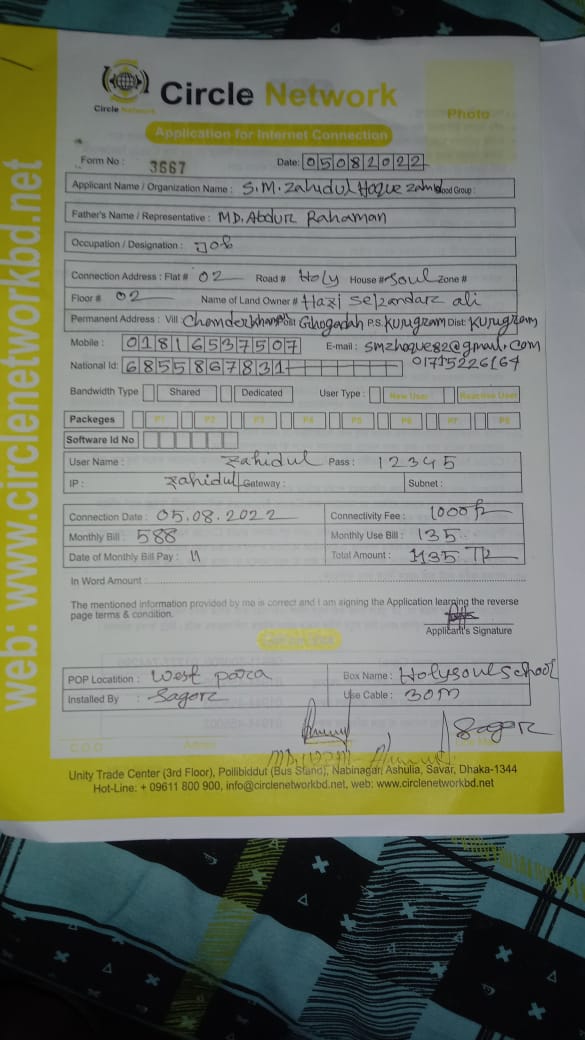 web: www.circlenetworkbd.net
Circle Network
Circle Network
Photo
Application for Internet Connection
Form No : 3667 Date: 05082022
Applicant Name / Organization Name : S.M. Zahidul Hoque Zahid Blood Group :
Father's Name / Representative : MD. Abdur Rahaman
Occupation / Designation : Job
Connection Address : Flat # 02 Road # Holy House # Soul Zone #
Floor # 02 Name of Land Owner # Hazi Sekandar ali
Permanent Address : Vill: Post: Ghogadah P.S. Kurugram Dist: Kurugram
Mobile : 01816537507 E-mail : smzhoque82@gmail.com
01715226164
National Id: 6855867831
Bandwidth Type Shared Dedicated User Type : New User Reactive User
Packeges P1 P2 P3 P4 P5 P6 P7 P8
Software Id No
User Name : Zahidul Pass : 12345
IP : Zahidul Gateway : Subnet :
Connection Date : 05.08.2022 Connectivity Fee : 1000
Monthly Bill : 588 Monthly Use Bill : 135
Date of Monthly Bill Pay : 11 Total Amount : 1135 TK
In Word Amount :
The mentioned information provided by me is correct and I am signing the Application learning the reverse
page terms & condition.
Applicant's Signature
POP Locatition : West para Box Name : Holysoulschool
Installed By : Sagor Use Cable : 30M
Sagor
C.O.O
Unity Trade Center (3rd Floor), Pollibiddut (Bus Stand), Nabinagar, Ashulia, Savar, Dhaka-1344
Hot-Line: + 09611 800 900, info@circlenetworkbd.net, web: www.circlenetworkbd.net